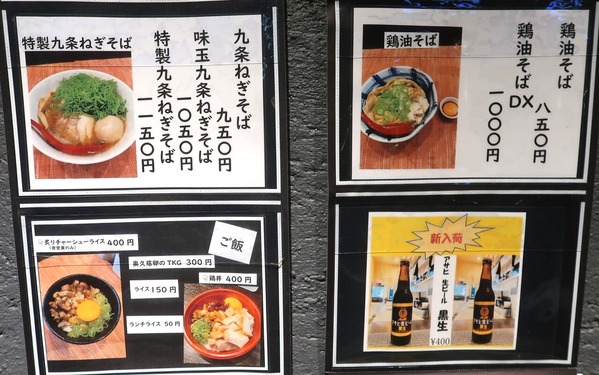 特製九条ねぎそば
九条ねぎそば
九五〇円
味玉九条ねぎそば
一〇五〇円
特製九条ねぎそば
一一五〇円
鶏油そば
鶏油そば
八五〇円
鶏油そばDX
一〇〇〇円
ご飯
炙りチャーシューライス 400円
(夜営業のみ)
奥久慈卵のTKG 300円
鶏丼 400円
ライス 150円
ランチライス 50円
新入荷
アサヒ 生ビール 黒生
¥400